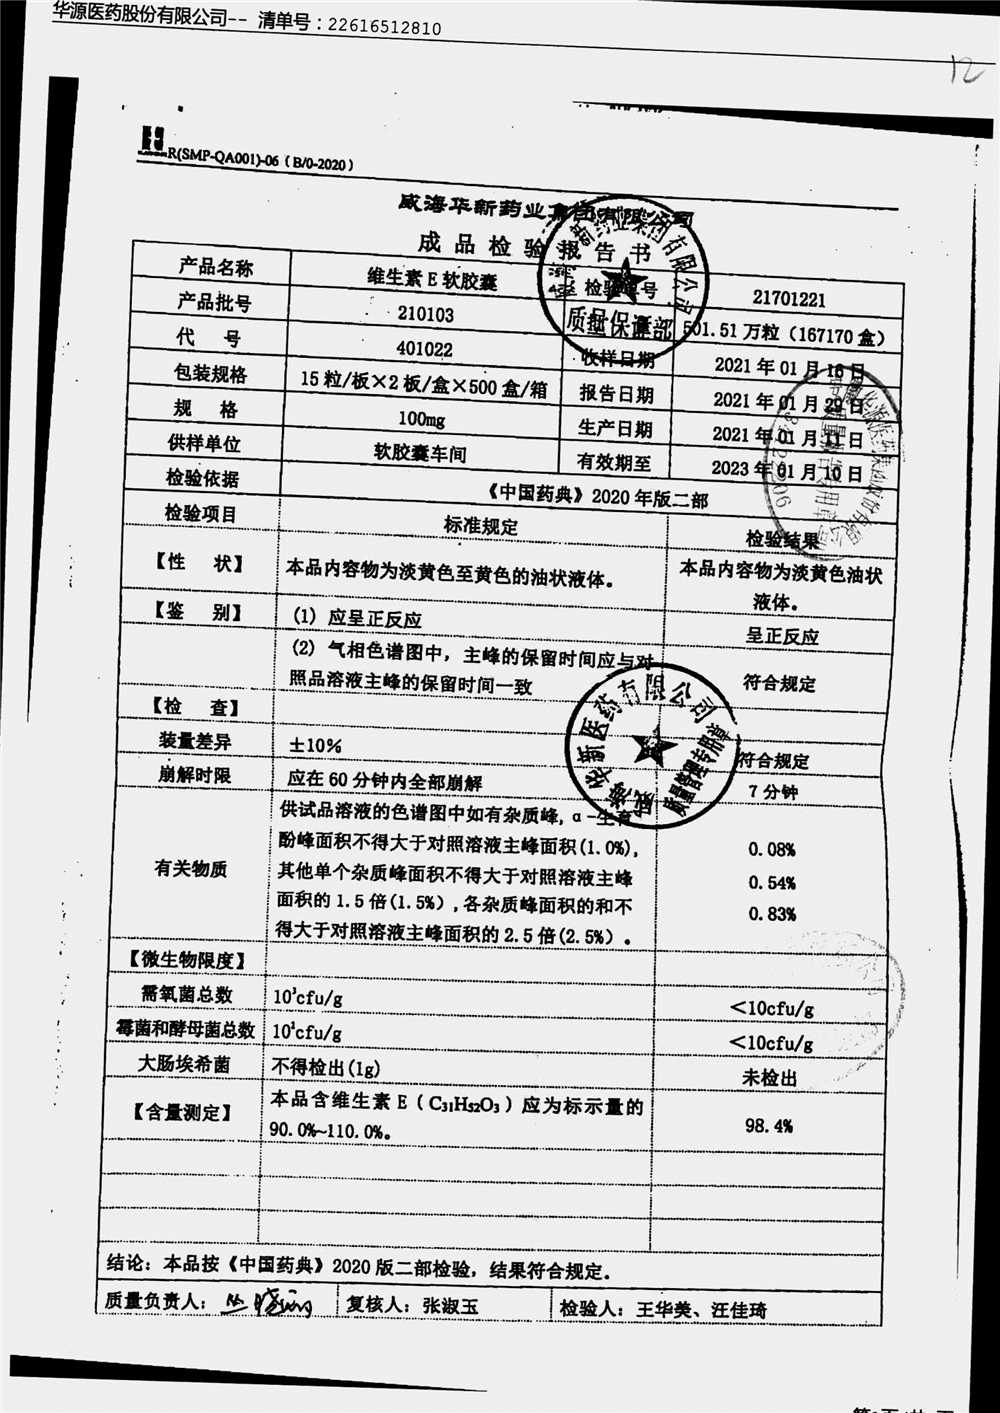 华源医药股份有限公司-- 清单号：22616512810
12
R(SMP-QA001)-06（B/0-2020）
威海华新药业集团有限公司
成品检验报告书
产品名称 维生素 E 软胶囊 检验单号 21701221
产品批号 210103 501.51 万粒（167170 盒）
代 号 401022 收样日期 2021 年 01 月 16 日
包装规格 15 粒/板×2 板/盒×500 盒/箱 报告日期 2021 年 01 月 29 日
规 格 100mg 生产日期 2021 年 01 月 11 日
供样单位 软胶囊车间 有效期至 2023 年 01 月 10 日
检验依据 《中国药典》2020 年版二部
检验项目 标准规定 检验结果
【性 状】 本品内容物为淡黄色至黄色的油状液体。 本品内容物为淡黄色油状
液体。
【鉴 别】 (1) 应呈正反应 呈正反应
(2) 气相色谱图中，主峰的保留时间应与对
照品溶液主峰的保留时间一致 符合规定
【检 查】
装量差异 ±10% 符合规定
崩解时限 应在 60 分钟内全部崩解 7 分钟
供试品溶液的色谱图中如有杂质峰, α-生育
酚峰面积不得大于对照溶液主峰面积(1.0%), 0.08%
有关物质 其他单个杂质峰面积不得大于对照溶液主峰 0.54%
面积的 1.5 倍(1.5%）,各杂质峰面积的和不 0.83%
得大于对照溶液主峰面积的 2.5 倍(2.5%）。
【微生物限度】
需氧菌总数 10³cfu/g <10cfu/g
霉菌和酵母菌总数 10²cfu/g <10cfu/g
大肠埃希菌 不得检出(1g) 未检出
【含量测定】 本品含维生素 E（C₃₁H₅₂O₃）应为标示量的
90.0%~110.0%。 98.4%
结论：本品按《中国药典》2020 版二部检验，结果符合规定。
质量负责人： 复核人：张淑玉 检验人：王华美、汪佳琦
质量保证部
有限公司
质量管理专用章